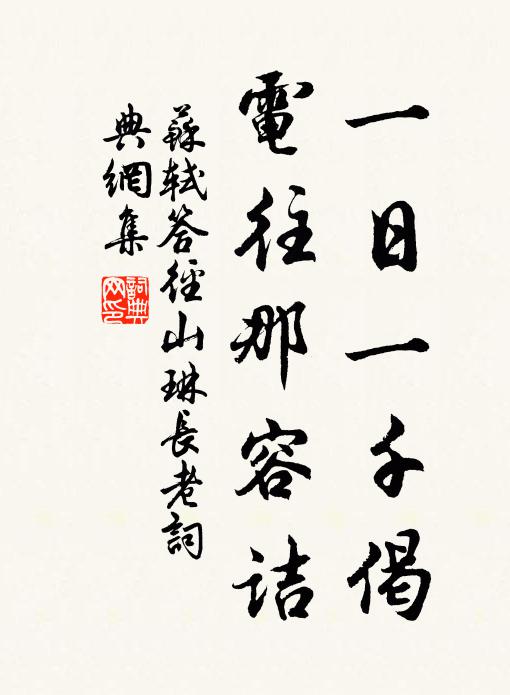 一日一千偈
電往那容詰
蘇軾答徑山琳長老詞
典網集
詞典
网印